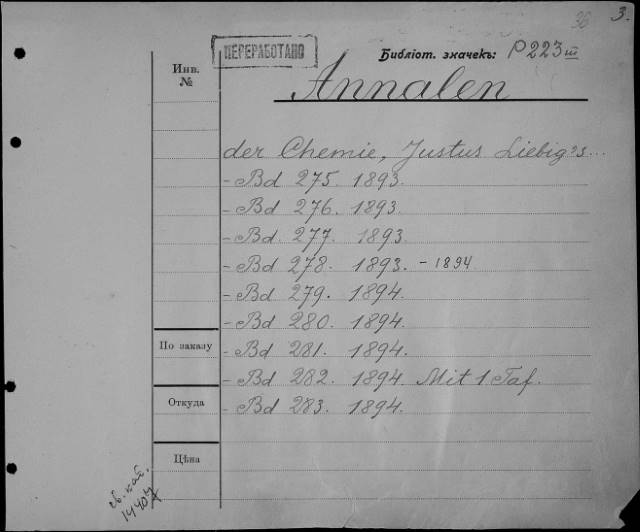 36 3.
ПЕРЕРАБОТАНО
Библіот. значекъ: P 223 III
Инв. №
Annalen
der Chemie, Justus Liebig's...
- Bd 275. 1893.
- Bd 276. 1893.
- Bd 277. 1893.
- Bd 278. 1893. - 1894
- Bd 279. 1894.
- Bd 280. 1894.
По заказу
- Bd 281. 1894.
- Bd 282. 1894. Mit 1 Taf.
Откуда
- Bd 283. 1894.
Цѣна
св. кат.